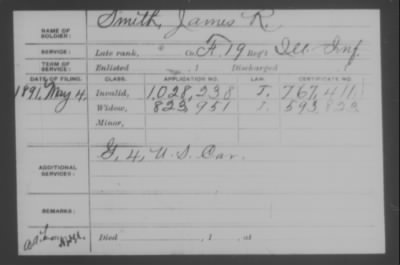 NAME OF SOLDIER: Smith, James R.
SERVICE: Late rank, Co. F, 19 Reg't Ill. Inf.
TERM OF SERVICE: Enlisted , 1 Discharged
DATE OF FILING. CLASS. APPLICATION NO. LAW. CERTIFICATE NO.
1891, May 4. Invalid, 1,028,238 J. 767,411
Widow, 823,951 J. 593,823
Minor,
ADDITIONAL SERVICES: G, 4, U.S. Cav.
REMARKS:
Died , 1 , at